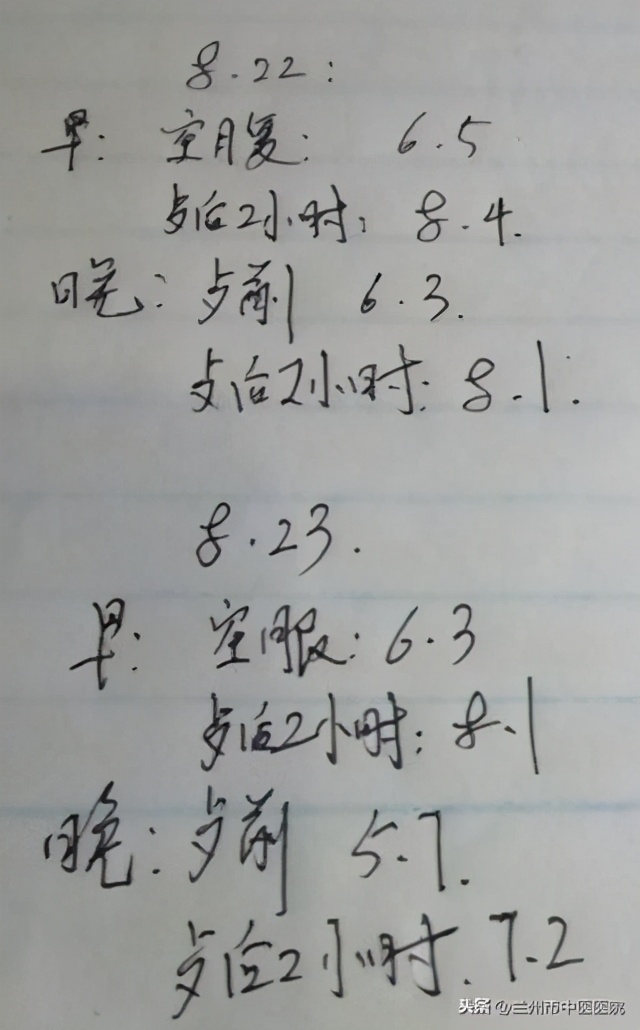 8.22:
早: 空腹: 6.5
歺后2小时: 8.4.
晚: 歺前 6.3.
歺后2小时: 8.1.
8.23.
早: 空服: 6.3
歺后2小时: 8.1
晚: 歺前 5.7.
歺后2小时. 7.2
头条 @兰州市中医医院